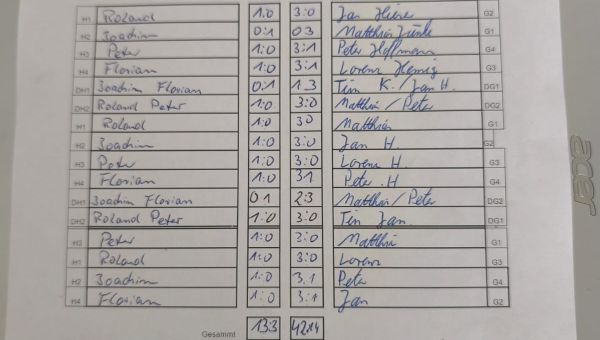 H1 Roland 1:0 3:0 Jan Heine G2
H2 Joachim 0:1 0 3 Matthias G1
H3 Peter 1:0 3:1 Peter Hoffmann G4
H4 Florian 1:0 3:1 Lorenz Hennig G3
DH1 Joachim Florian 0:1 1:3 Tim K./Jan H. DG1
DH2 Roland Peter 1:0 3:0 Matthias/Peter DG2
H1 Roland 1:0 3 0 Matthias G1
H2 Joachim 1:0 3:0 Jan H. G2
H3 Peter 1:0 3:0 Lorenz H G3
H4 Florian 1:0 3 1 Peter .H G4
DH1 Joachim Florian 0 1 2:3 Matthias/Peter DG2
DH2 Roland Peter 1:0 3:0 Tim Jan. DG1
H3 Peter 1:0 3:0 Matthias G1
H1 Roland 1:0 3:0 Lorenz G3
H2 Joachim 1:0 3.1 Peter G4
H4 Florian 1:0 3:1 Jan G2
Gesamt 13:3 42:14
acer